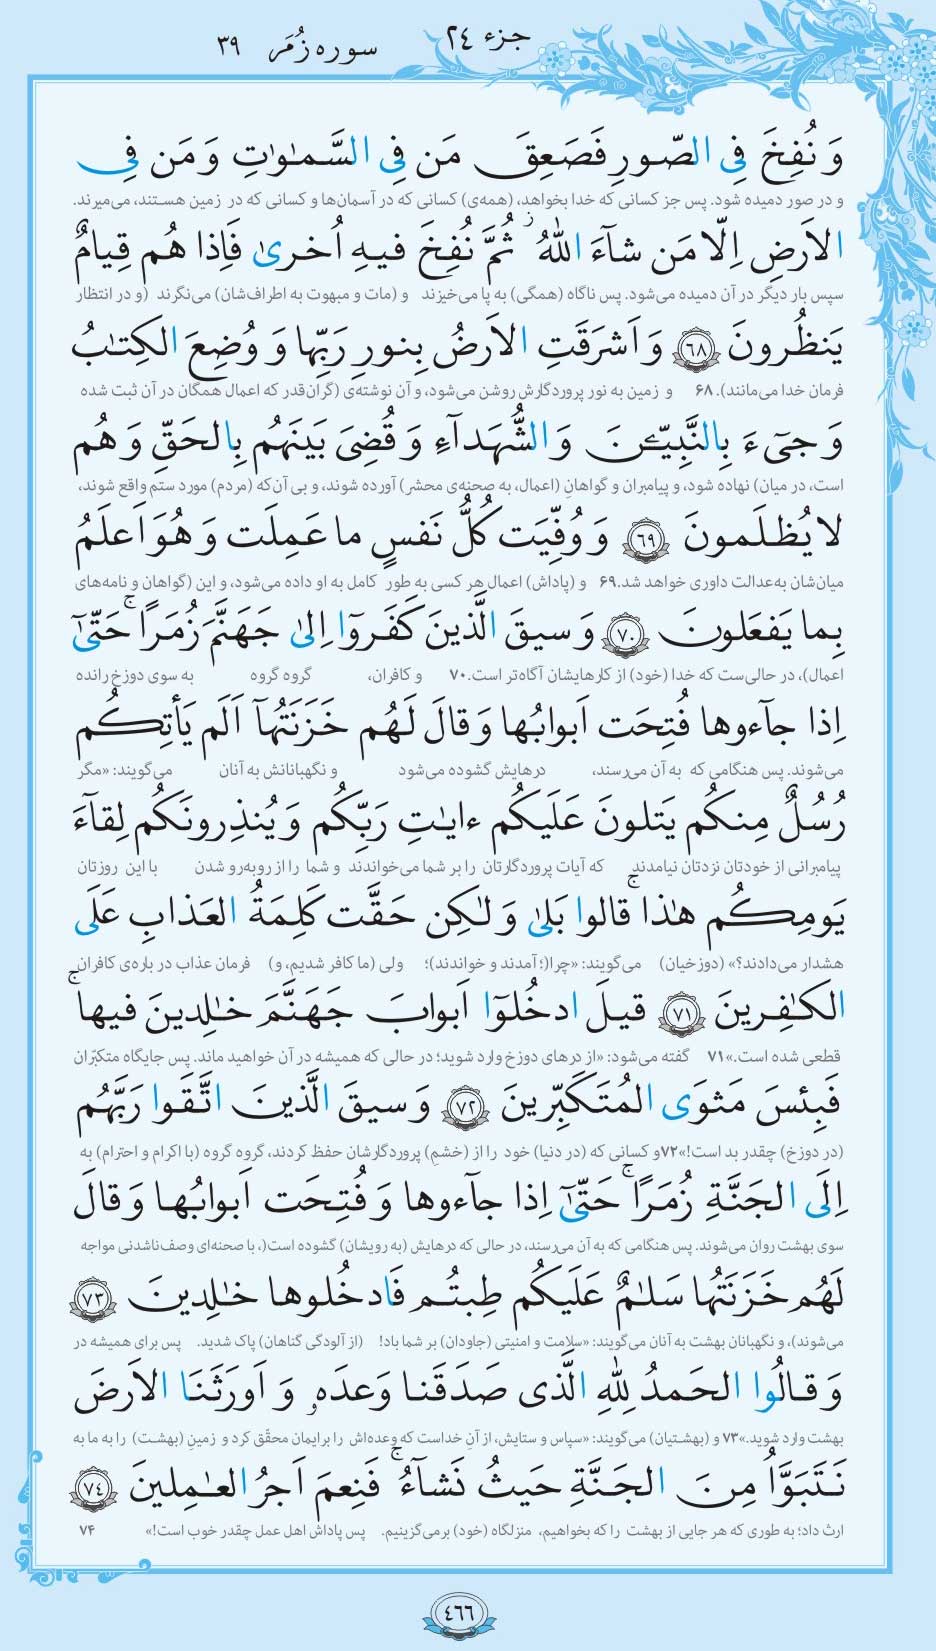 جزء ۲٤
سوره زُمَر ۳۹
وَ نُفِخَ فِی الصّورِ فَصَعِقَ مَن فِی السَّمٰوٰتِ وَ مَن فِی
و در صور دمیده شود. پس جز کسانی که خدا بخواهد، (همه‌ی) کسانی که در آسمان‌ها و کسانی که در زمین هستند، می‌میرند.
الاَرضِ اِلّا مَن شآءَ اللّٰهُ ۖ ثُمَّ نُفِخَ فیهِ اُخریٰ فَاِذا هُم قِیامٌ
سپس بار دیگر در آن دمیده می‌شود. پس ناگاه (همگی) به پا می‌خیزند و (مات و مبهوت به اطراف‌شان) می‌نگرند (و در انتظار
یَنظُرونَ ﴿۶۸﴾ وَ اَشرَقَتِ الاَرضُ بِنورِ رَبِّها وَ وُضِعَ الکِتٰبُ
فرمان خدا می‌مانند). ۶۸ و زمین به نور پروردگارش روشن می‌شود، و آن نوشته‌ی (گران‌قدر که اعمال همگان در آن ثبت شده
وَ جیءَ بِالنَّبِیّینَ وَ الشُّهَدآءِ وَ قُضِیَ بَینَهُم بِالحَقِّ وَ هُم
است، در میان) نهاده شود، و پیامبران و گواهانِ (اعمال، به صحنه‌ی محشر) آورده شوند، و بی آن‌که (مردم) مورد ستم واقع شوند،
لا یُظلَمونَ ﴿۶۹﴾ وَ وُفِّیَت کُلُّ نَفسٍ ما عَمِلَت وَ هُوَ اَعلَمُ
میان‌شان به‌عدالت داوری خواهد شد. ۶۹ و (پاداش) اعمال هر کسی به طور کامل به او داده می‌شود، و این (گواهان و نامه‌های
بِما یَفعَلونَ ﴿۷۰﴾ وَ سیقَ الَّذینَ کَفَروٓا اِلیٰ جَهَنَّمَ زُمَرًا ۚ حَتّیٰٓ
اعمال)، در حالی‌ست که خدا (خود) از کارهایشان آگاه‌تر است. ۷۰ و کافران، گروه گروه به سوی دوزخ رانده
اِذا جآءوها فُتِحَت اَبوابُها وَ قالَ لَهُم خَزَنَتُهآ اَلَم یَأتِکُم
می‌شوند. پس هنگامی که به آن می‌رسند، درهایش گشوده می‌شود و نگهبانانش به آنان می‌گویند: «مگر
رُسُلٌ مِنکُم یَتلونَ عَلَیکُم ءایٰتِ رَبِّکُم وَ یُنذِرونَکُم لِقآءَ
پیامبرانی از خودتان نزدتان نیامدند که آیات پروردگارتان را بر شما می‌خواندند و شما را از روبه‌رو شدن با این روزتان
یَومِکُم هٰذا ۚ قالوا بَلیٰ وَ لٰکِن حَقَّت کَلِمَةُ العَذابِ عَلَی
هشدار می‌دادند؟» (دوزخیان) می‌گویند: «چرا(؛ آمدند و خواندند)؛ ولی (ما کافر شدیم، و) فرمان عذاب در باره‌ی کافران
الکٰفِرینَ ﴿۷۱﴾ قیلَ ادخُلوٓا اَبوابَ جَهَنَّمَ خٰلِدینَ فیها ۚ
قطعی شده است.» ۷۱ گفته می‌شود: «از درهای دوزخ وارد شوید؛ در حالی که همیشه در آن خواهید ماند. پس جایگاه متکبّران
فَبِئسَ مَثوَی المُتَکَبِّرینَ ﴿۷۲﴾ وَ سیقَ الَّذینَ اتَّقَوا رَبَّهُم
(در دوزخ) چقدر بد است!» ۷۲ و کسانی که (در دنیا) خود را از (خشمِ) پروردگارشان حفظ کردند، گروه گروه (با اکرام و احترام) به
اِلَی الجَنَّةِ زُمَرًا ۚ حَتّیٰٓ اِذا جآءوها وَ فُتِحَت اَبوابُها وَ قالَ
سوی بهشت روان می‌شوند. پس هنگامی که به آن می‌رسند، در حالی که درهایش (به رویشان) گشوده است(، با صحنه‌ای وصف‌ناشدنی مواجه
لَهُم خَزَنَتُها سَلٰمٌ عَلَیکُم طِبتُم فَادخُلوها خٰلِدینَ ﴿۷۳﴾
می‌شوند)، و نگهبانان بهشت به آنان می‌گویند: «سلامت و امنیتی (جاودان) بر شما باد! (از آلودگی گناهان) پاک شدید. پس برای همیشه در
وَ قالُوا الحَمدُ لِلّٰهِ الَّذی صَدَقَنا وَعدَهٗ وَ اَورَثَنَا الاَرضَ
بهشت وارد شوید.» ۷۳ و (بهشتیان) می‌گویند: «سپاس و ستایش، از آنِ خداست که وعده‌اش را برایمان محقّق کرد و زمینِ (بهشت) را به ما به
نَتَبَوَّاُ مِنَ الجَنَّةِ حَیثُ نَشآءُ ۚ فَنِعمَ اَجرُ العٰمِلینَ ﴿۷٤﴾
ارث داد؛ به طوری که هر جایی از بهشت را که بخواهیم، منزلگاه (خود) برمی‌گزینیم. پس پاداش اهل عمل چقدر خوب است!» ۷۴
٤۶۶